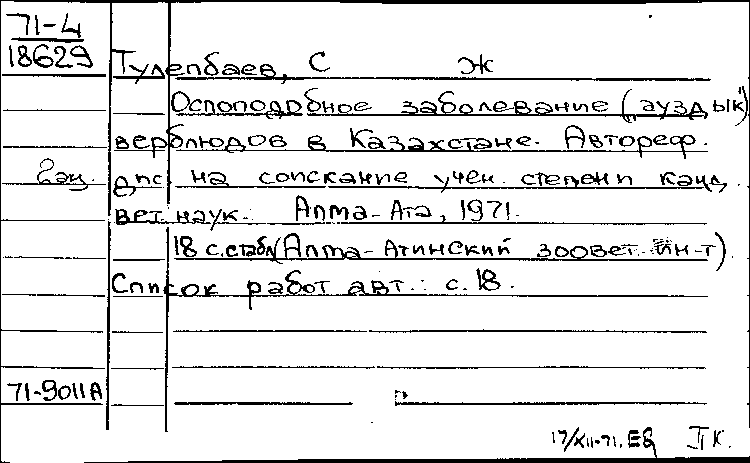 71-4
18629
Тулепбаев, С Ж
Оспоподобное заболевание („ауздык")
верблюдов в Казахстане. Автореф.
2 экз. дис. на соискание учен. степени канд.
вет. наук. Алма-Ата, 1971.
18 с. с табл. (Алма-Атинский зоовет. ин-т).
Список работ авт.: с. 18.
71-9011А
17/XII-71.
ПК.